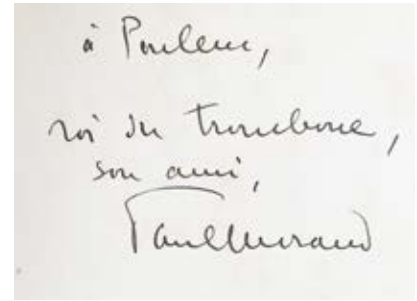 à Poulenc,
roi du trombone,
son ami,
Paul Morand